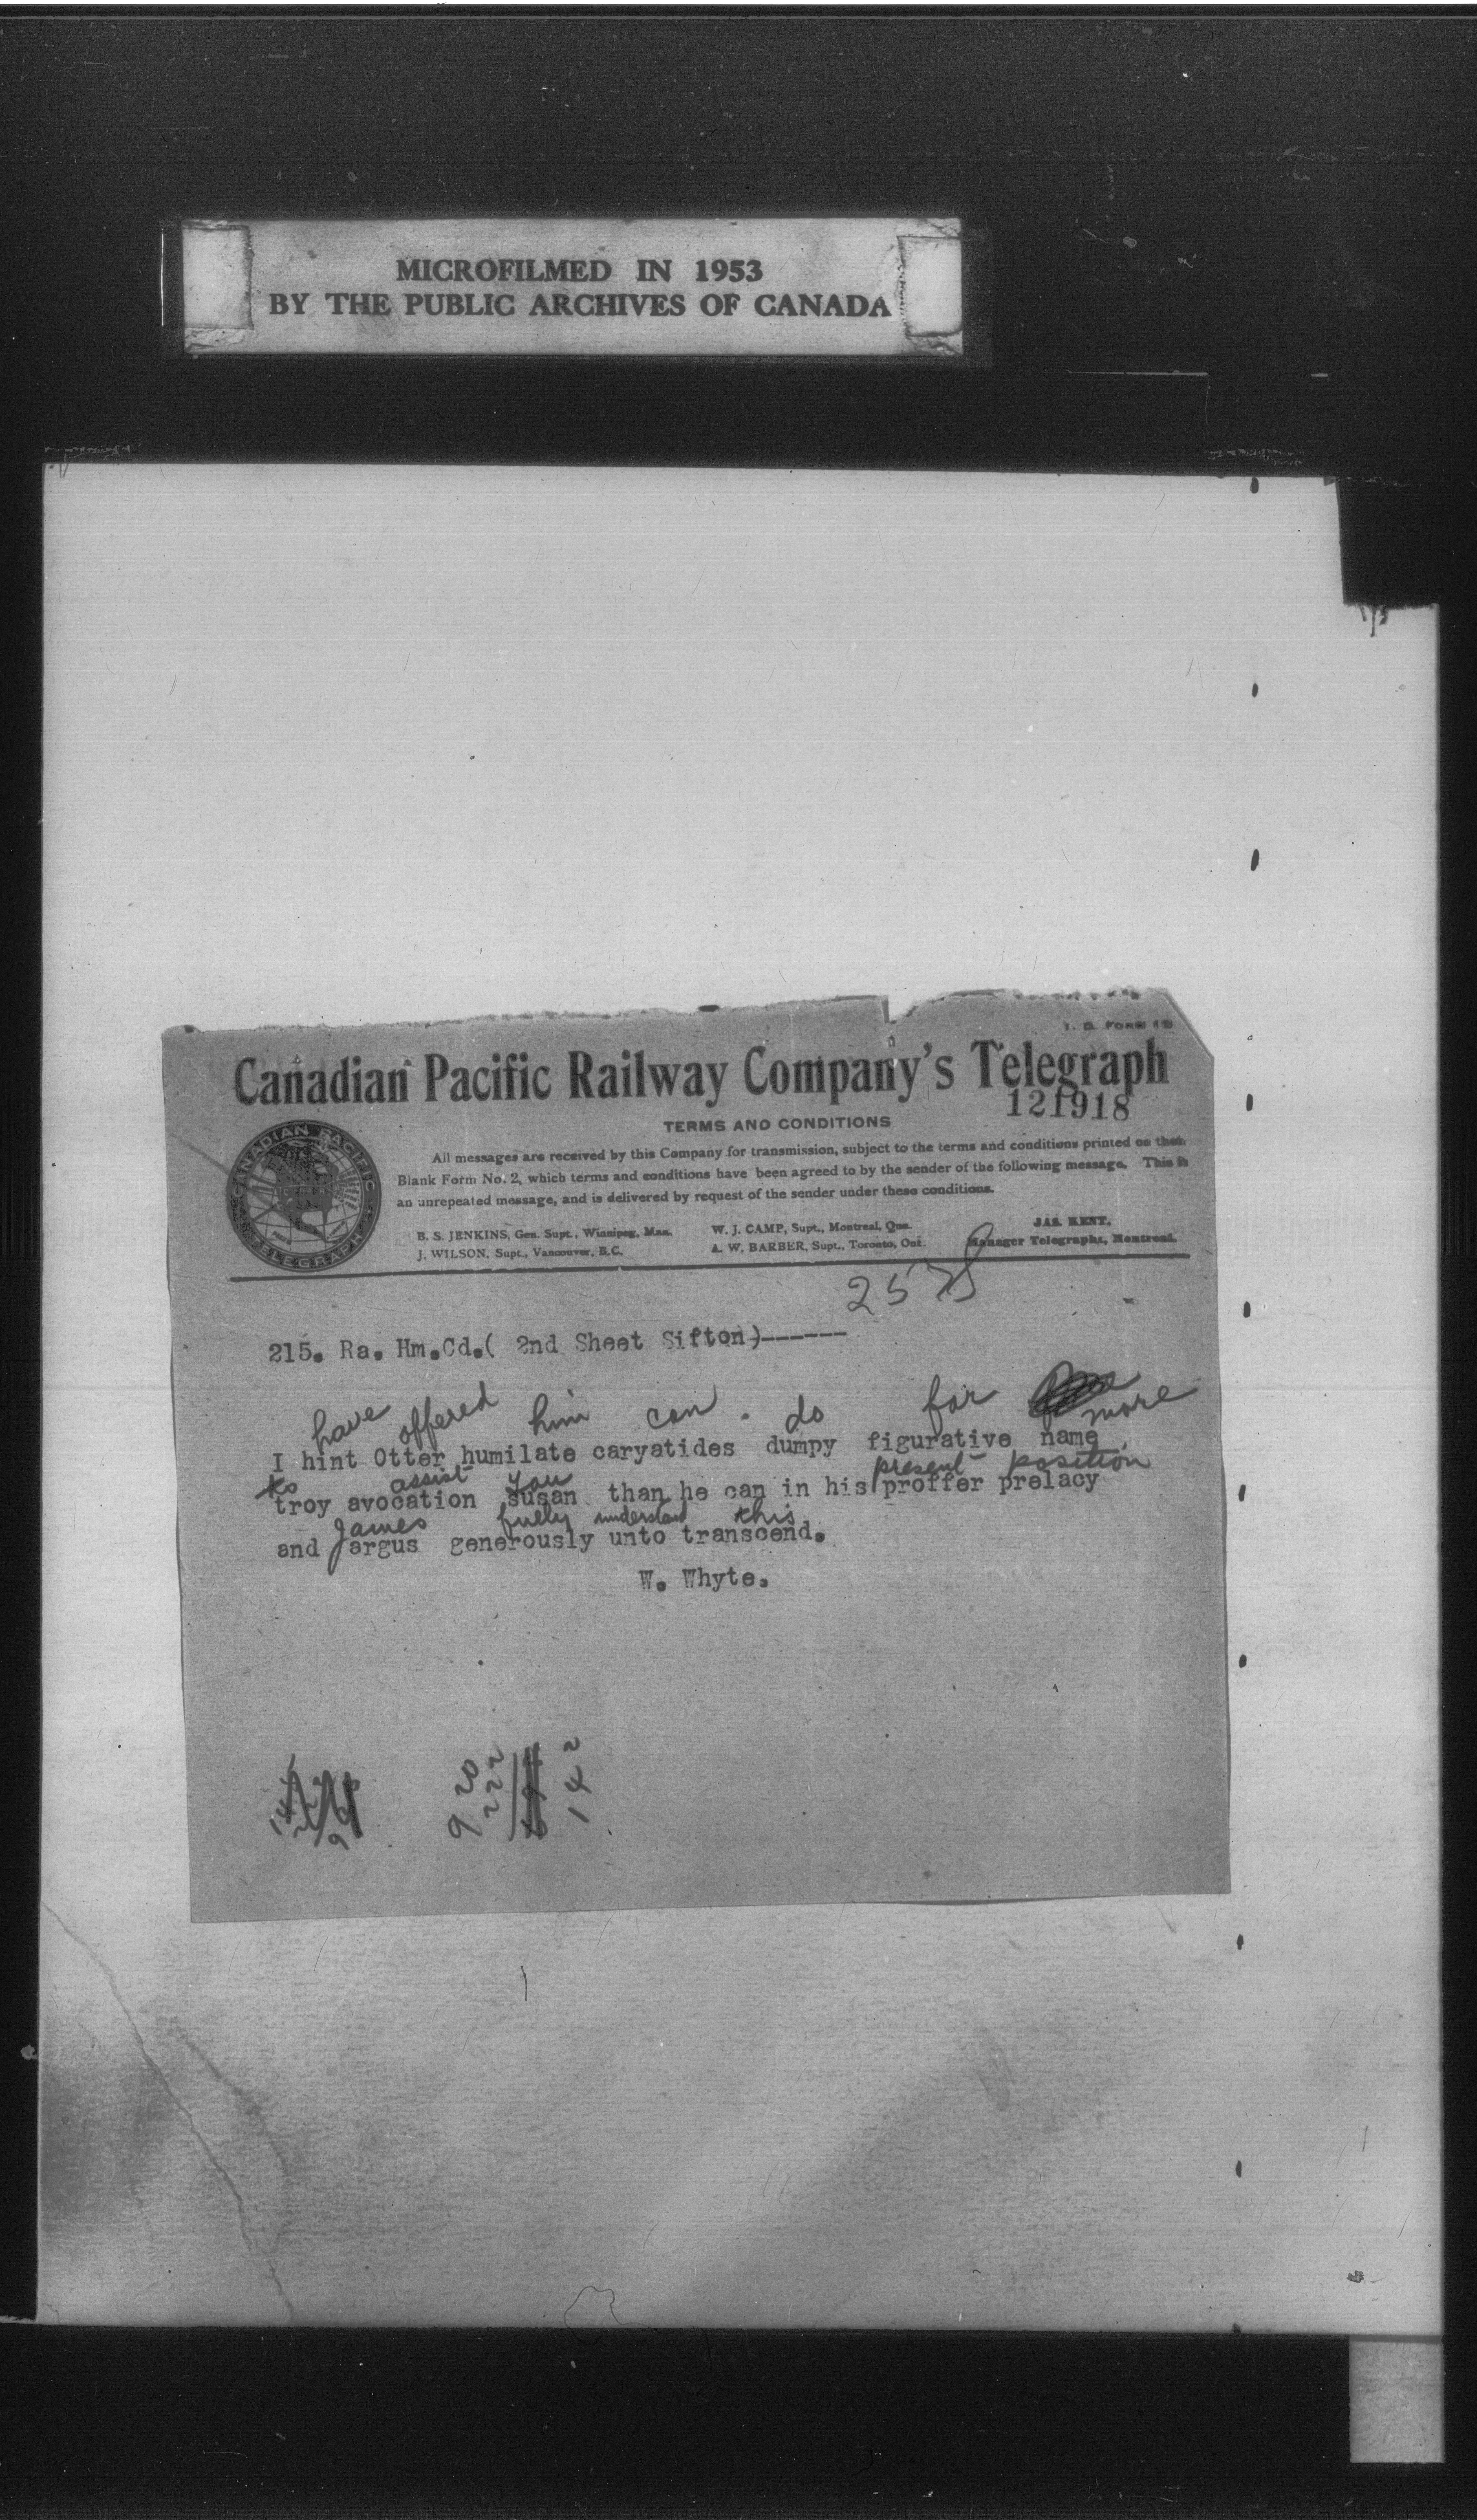 MICROFILMED IN 1953
BY THE PUBLIC ARCHIVES OF CANADA
T. D. FORM 1
Canadian Pacific Railway Company's Telegraph
121918
TERMS AND CONDITIONS
CANADIAN PACIFIC
TELEGRAPH
All messages are received by this Company for transmission, subject to the terms and conditions printed on their
Blank Form No. 2, which terms and conditions have been agreed to by the sender of the following message. This is
an unrepeated message, and is delivered by request of the sender under these conditions.
B. S. JENKINS, Gen. Supt., Winnipeg, Man.
J. WILSON, Supt., Vancouver, B.C.
W. J. CAMP, Supt., Montreal, Que.
A. W. BARBER, Supt., Toronto, Ont.
JAS. KENT,
Manager Telegraphs, Montreal.
257
215. Ra. Hm.Cd.( 2nd Sheet Sifton)------
have offered him can do for more
I hint Otter humilate caryatides dumpy figurative name
to assist you present position
troy avocation susan than he can in his proffer prelacy
James fully understand this
and argus generously unto transcend.
W. Whyte.
9 20
222
142